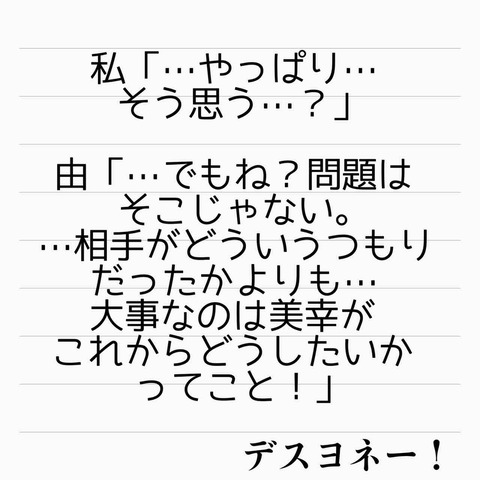 私「…やっぱり…
そう思う…？」
由「…でもね？問題は
そこじゃない。
…相手がどういうつもり
だったかよりも…
大事なのは美幸が
これからどうしたいか
ってこと！」
デスヨネー！